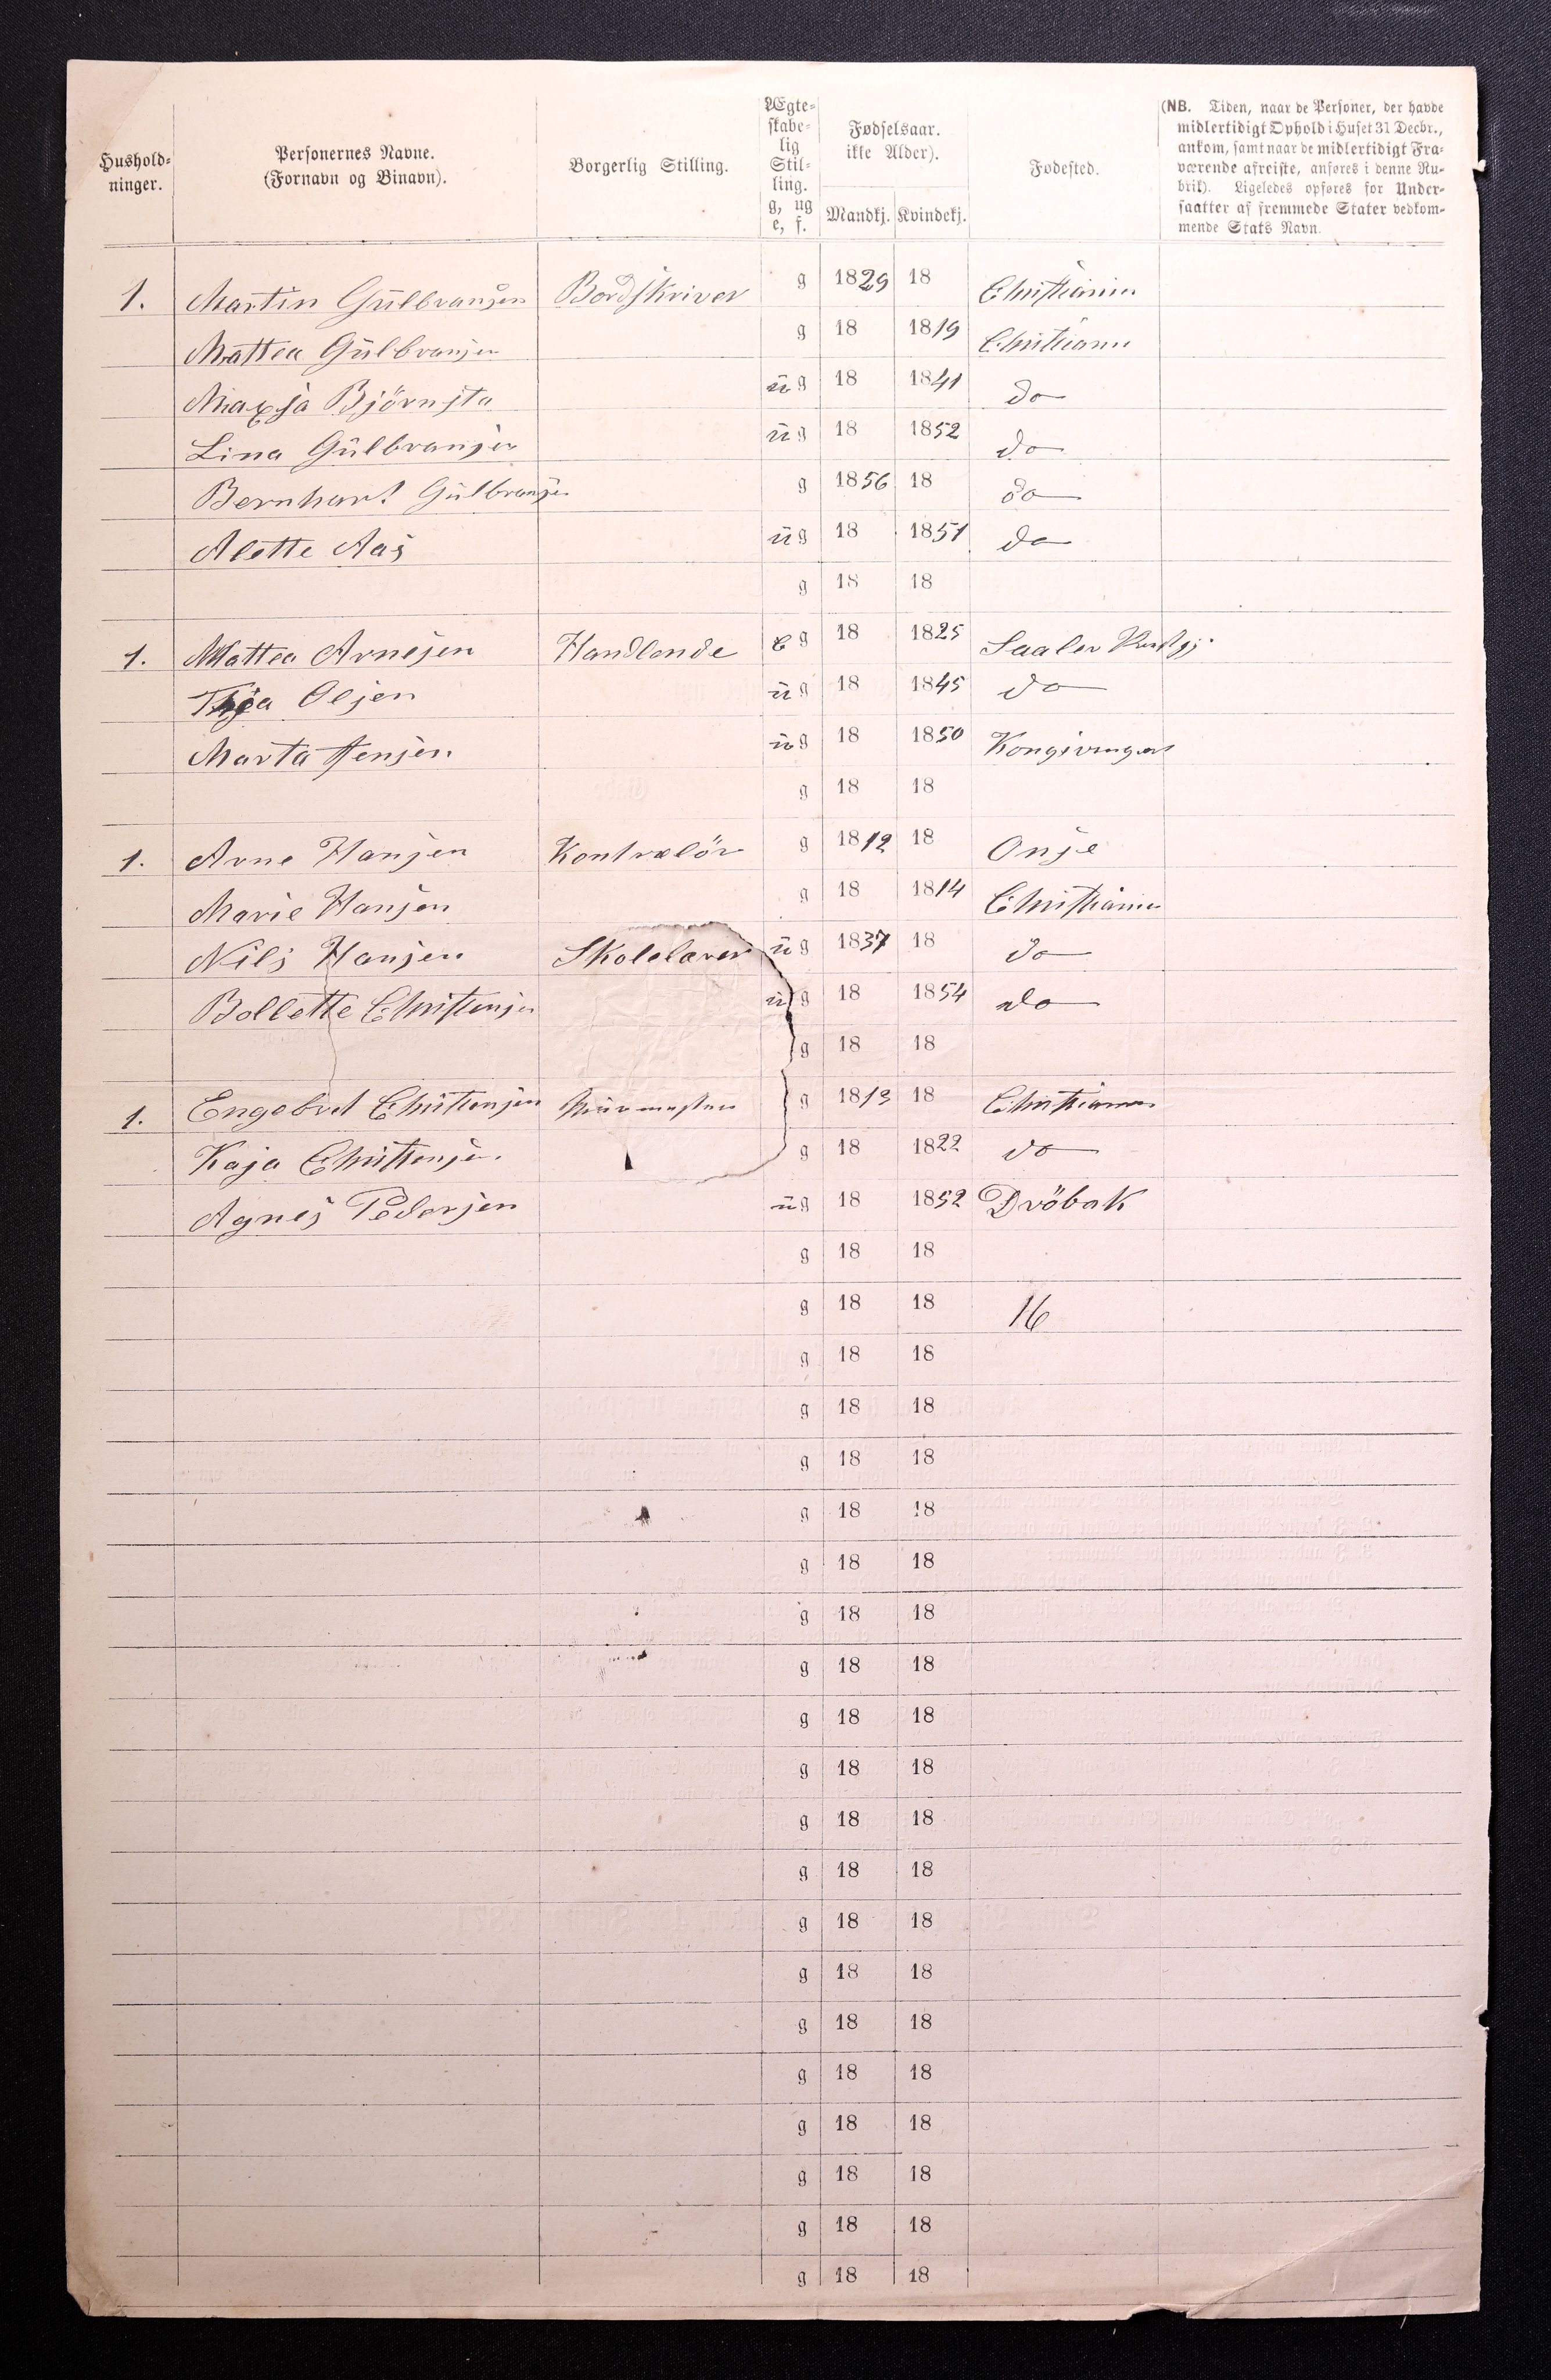 Hushold-
ninger.
Personernes Navne.
(Fornavn og Binavn).
Borgerlig Stilling.
Ægte-
skabe-
lig
Stil-
ling.
g, ug
e, f.
Fødselsaar.
ikke Alder).
Mandkj. Kvindekj.
Fødested.
(NB. Tiden, naar de Personer, der havde
midlertidigt Ophold i Huset 31 Decbr.,
ankom, samt naar de midlertidigt Fra-
værende afreiste, anføres i denne Ru-
brik). Ligeledes opføres for Under-
saatter af fremmede Stater vedkom-
mende Stats Navn.
1. Martin Gülbransen Bordskriver g 1829 18 Christiania
Mattea Gülbransen g 18 1819 Christiania
Björnsta üg 18 1841 do
Lina Gülbransen üg 18 1852 do
Bernhart Gülbransen g 1856 18 do
Alette Aas üg 18 1851 do
g 18 18
1. Mattea Arnesen Handlende e g 18 1825 Saaler
Olsen üg 18 1845 do
Marta Jensen üg 18 1850 Kongsvinger
g 18 18
1. Arne Hansen Kontrolör g 1812 18 Onsø
Marie Hansen g 18 1814 Christiania
Nils Hansen Skolelærer üg 1837 18 do
Bollette Christensen üg 18 1854 do
g 18 18
1. Engebret Christensen g 1813 18 Christiania
Kaja Christensen g 18 1822 do
Agnes Pedersen üg 18 1852 Dröbak
g 18 18
g 18 18 16
g 18 18
g 18 18
g 18 18
g 18 18
g 18 18
g 18 18
g 18 18
g 18 18
g 18 18
g 18 18
g 18 18
g 18 18
g 18 18
g 18 18
g 18 18
g 18 18
g 18 18
g 18 18
g 18 18